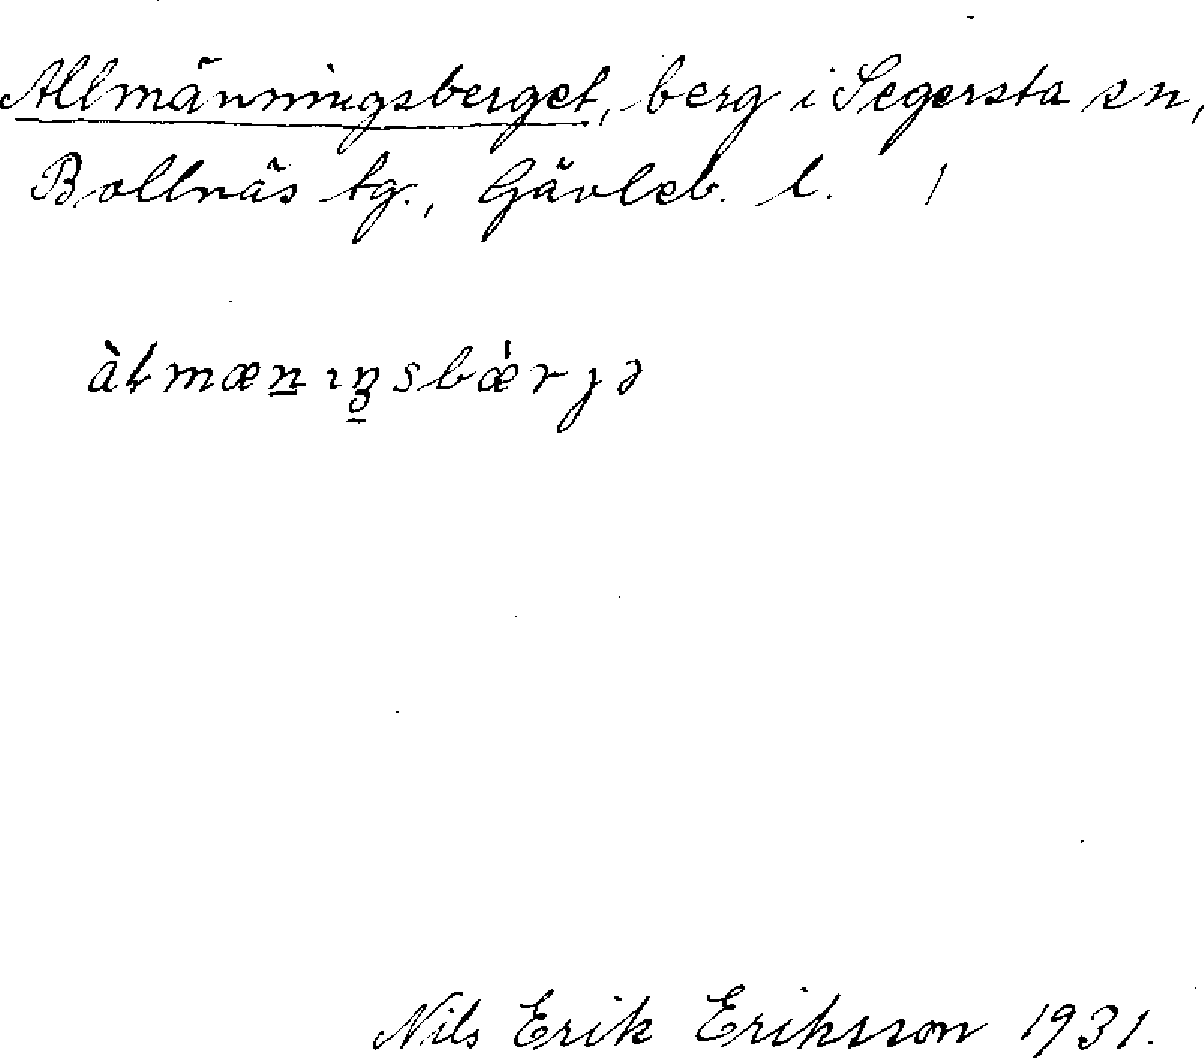 Allmänningsberget, berg i Segersta sn,
Bollnäs tg., Gävleb. l.
àłmæn̲ıŋ̲sbǽrȷə
Nils Erik Eriksson 1931.